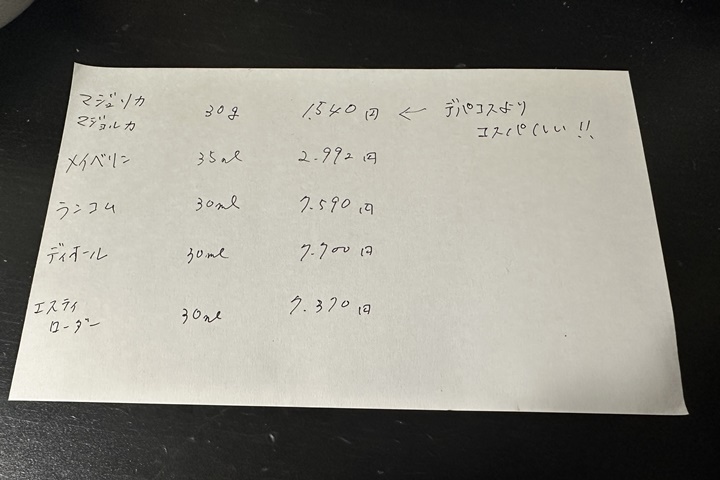 マジョリカ 30g 1.540円 ← デパコスより
マジョルカ コスパいい!!
メイベリン 35ml 2.992円
ランコム 30ml 7.590円
ディオール 30ml 7.700円
エスティ
ローダー 30ml 7.370円